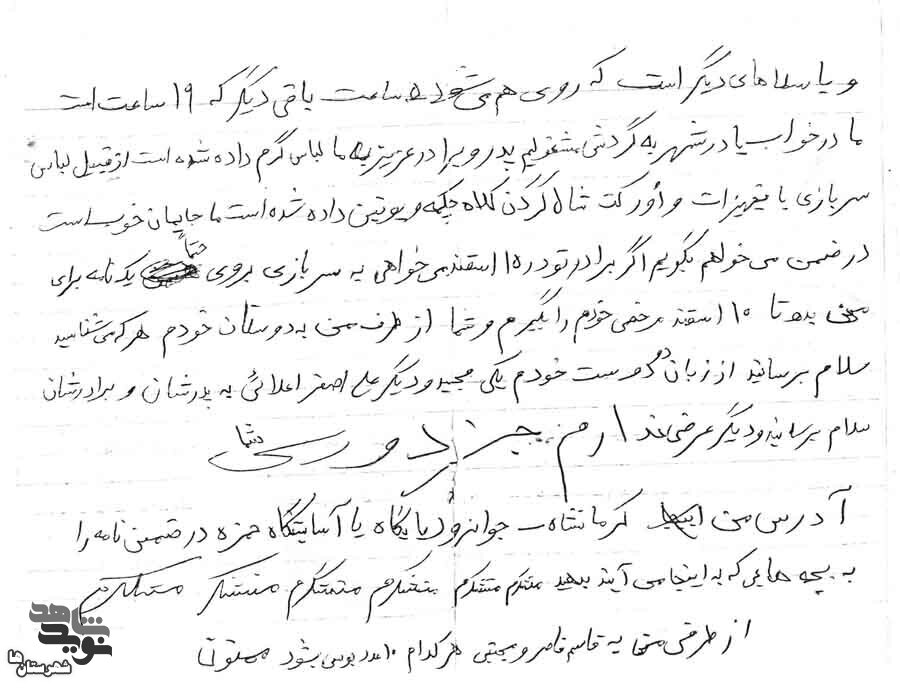 و یا سلاهای دیگر است که روی هم می شود ۵ ساعت باقی دیگر که ۱۹ ساعت است
ما در خواب یا در شهر به گردش مشغولیم پدر و برادر عزیزم به ما لباس گرم داده شده است از قبیل لباس
سربازی با تجهیزات و اُورکت شال گردن کلاه چکمه و پوتین داده شده است ما جایمان خوب است
در ضمن می خواهم بگویم اگر برادر تو در ۱۰ اسفند می خواهی به سربازی بروی حتماً یک نامه برای
من بده تا ۱۰ اسفند مرخصی خودم را بگیرم و شما از طرف من به دوستان خودم هر که می شناسید
سلام برسانید از زبان دو دوست خودم یکی مجید و دیگر علی اصغر اعلائی به پدرشان و برادرشان
سلام برسانید و دیگر عرضی ندارم جز دوری شما
آدرس من کرمانشاه - جوانرود پایگاه یا آسایشگاه حمزه در ضمن نامه را
به بچه هایی که به اینجا می آیند بدهید متشکرم متشکرم متشکرم متشکرم متشکر متشکرم
از طرف من به قاسم قاصر و مجتبی هر کدام ۱۰ عدد بوس بشود ممنون
نوید شاهد
شهرستان‌ها